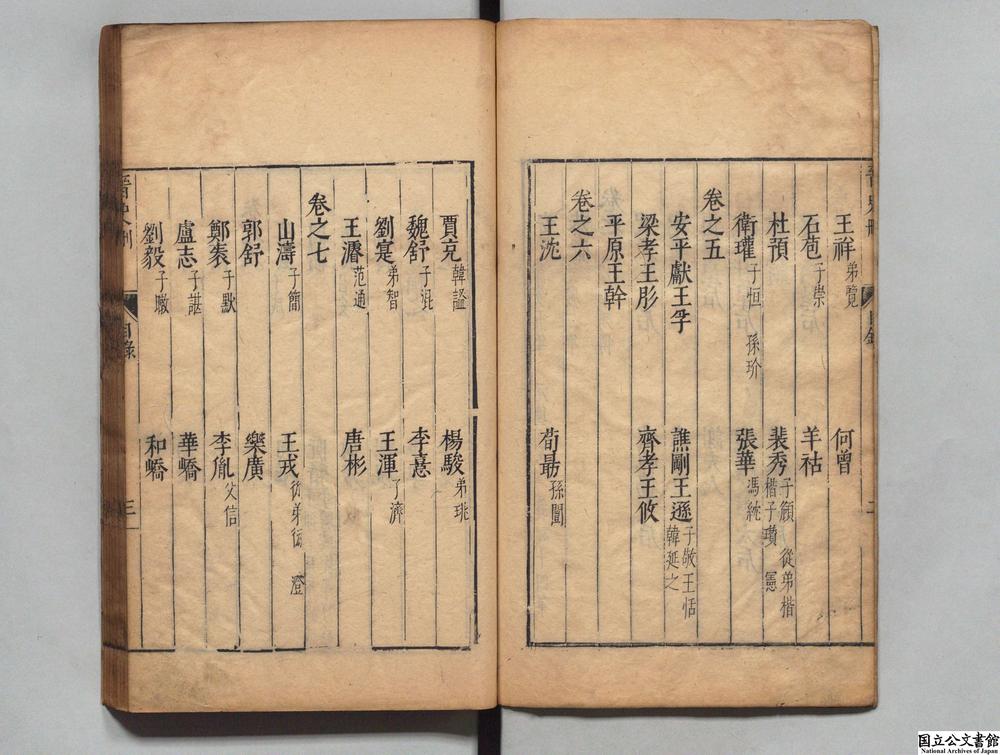 王祥 弟覽 何曾
石苞 子崇 羊祜
杜預 裴秀 子頠 從弟楷 楷子瓚 憲
衛瓘 子恒 孫玠 張華 馮紞
卷之五
安平獻王孚 譙剛王遜 子敬王恬 韓延之
梁孝王肜 齊孝王攸
平原王幹
卷之六
王沈 荀勗 孫闓
賈充 韓謐 楊駿 弟珧
魏舒 子混 李憙
劉寔 弟智 王渾 子濟
王濬 范通 唐彬
卷之七
山濤 子簡 王戎 從弟衍 澄
郭舒 樂廣
鄭袤 子默 李胤 父信
盧志 子諶 華嶠
劉毅 子暾 和嶠
目錄
三
二
国立公文書館
National Archives of Japan